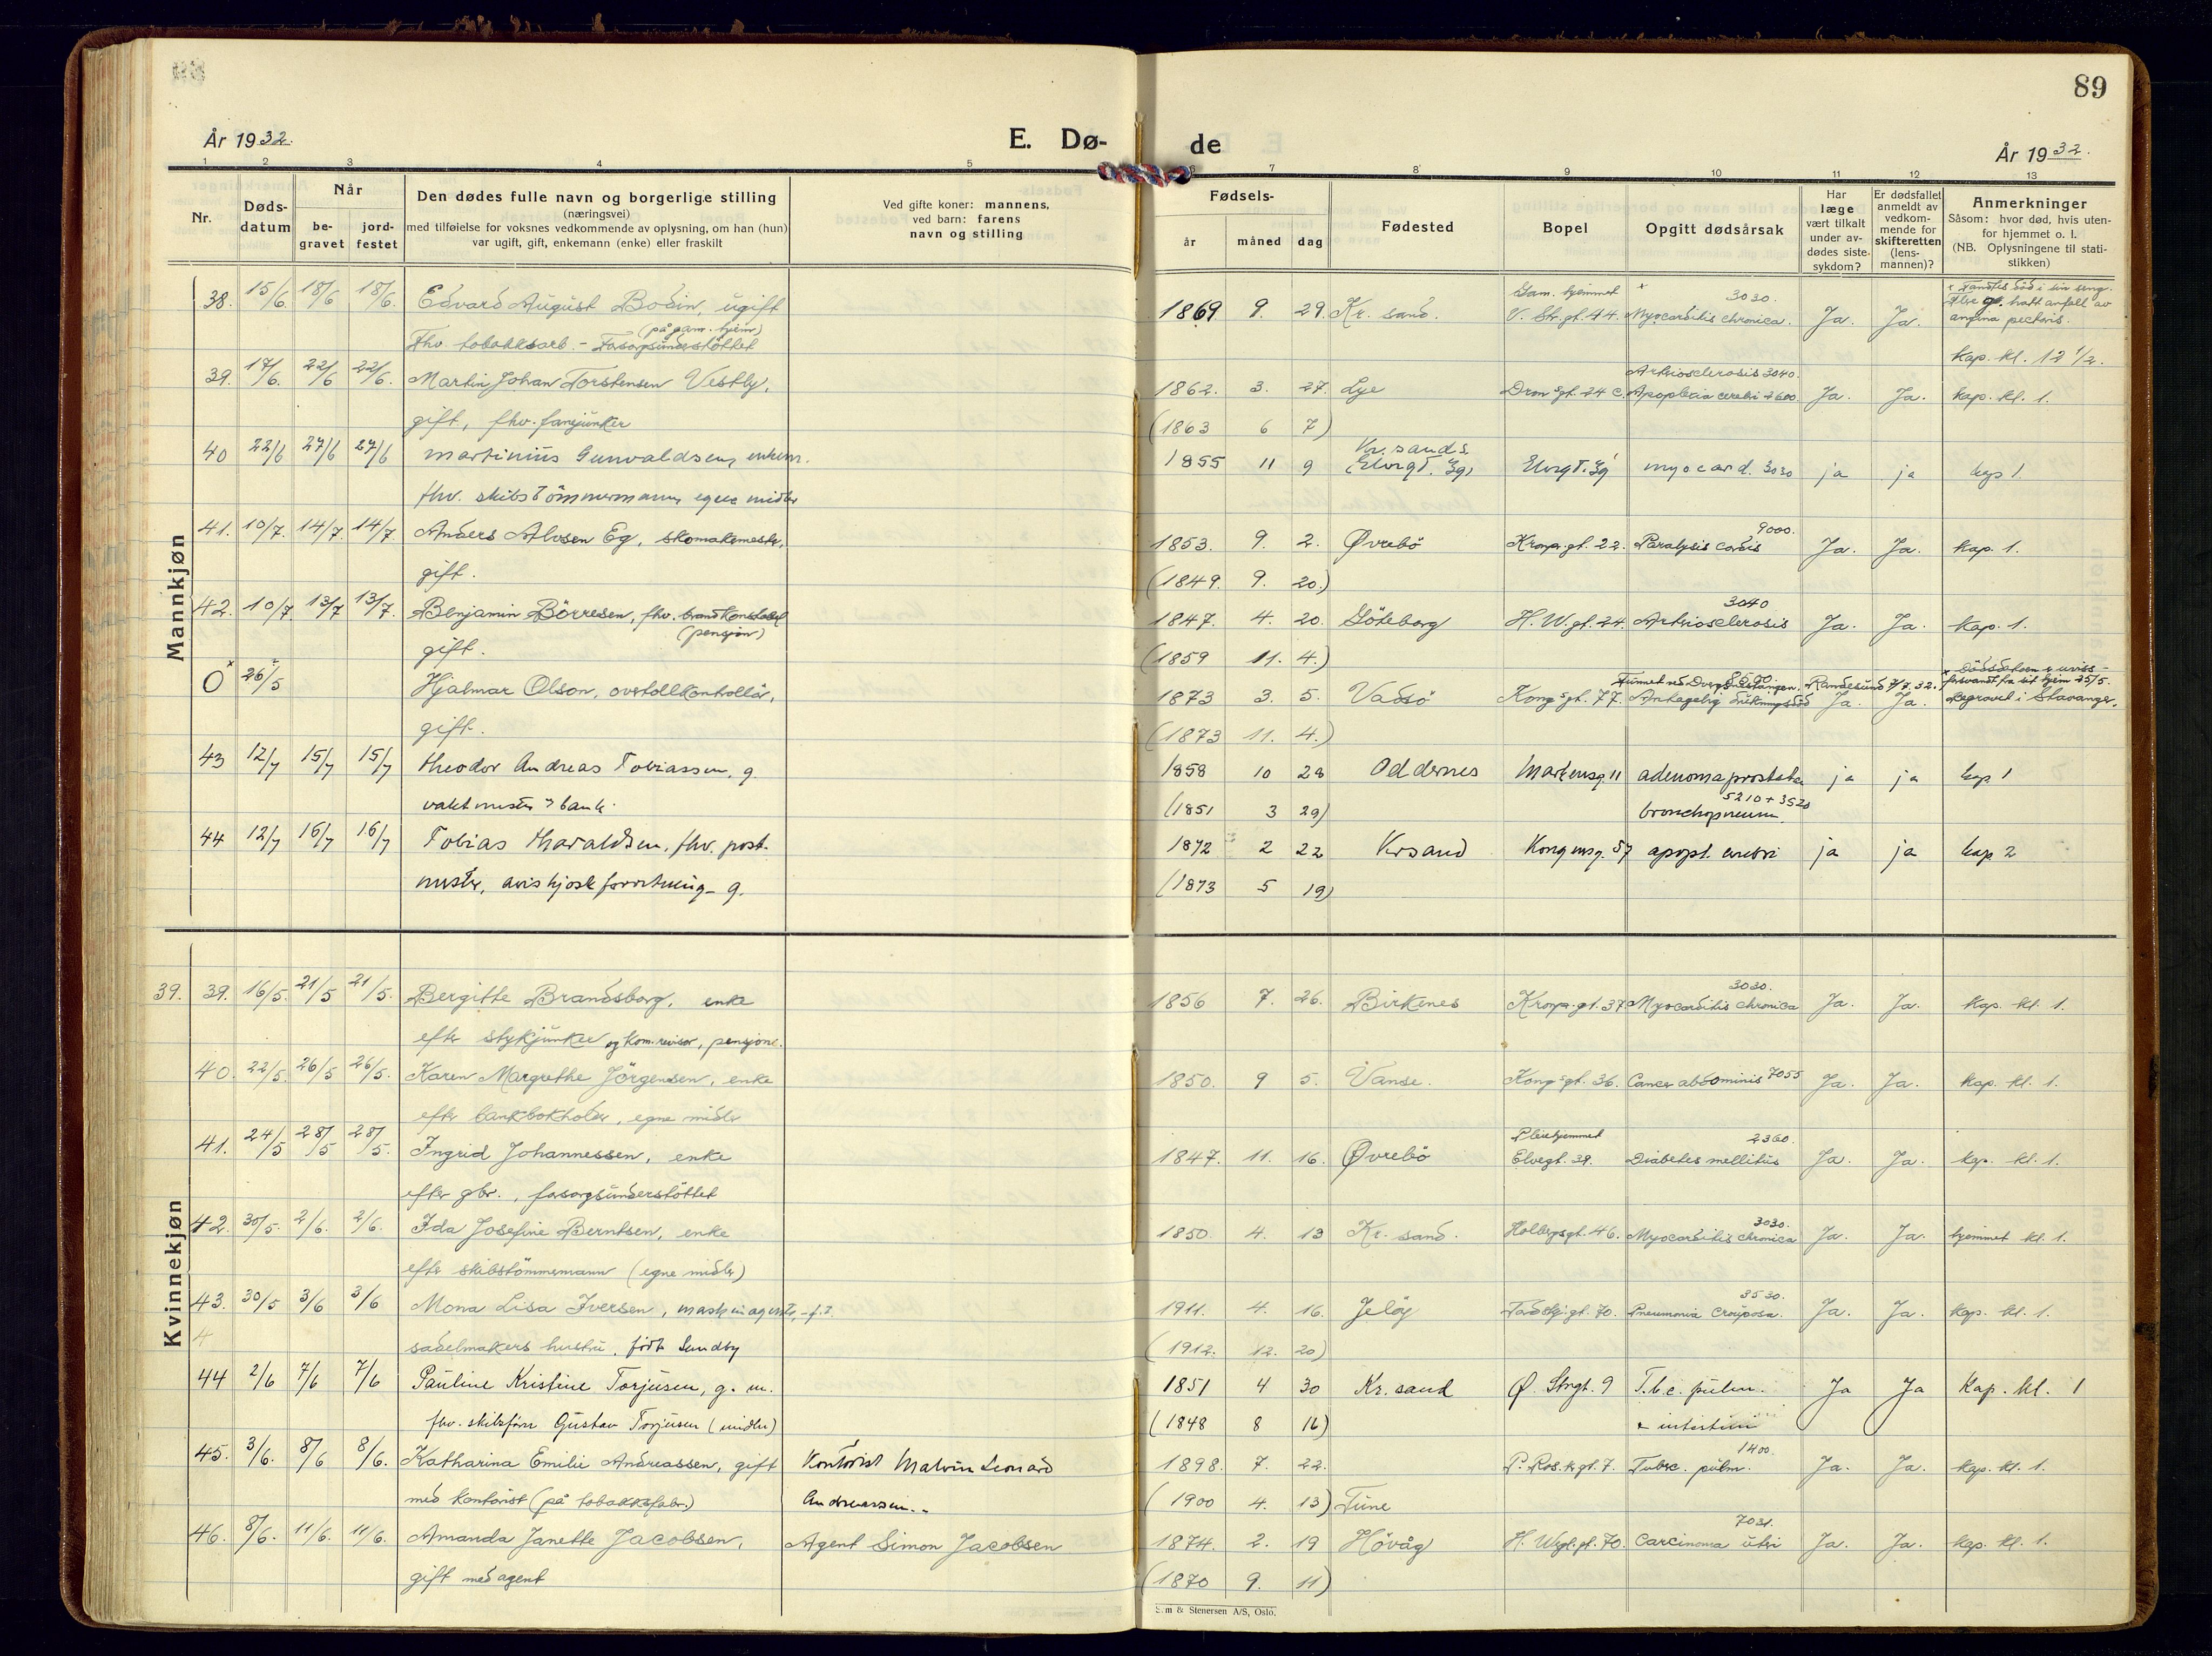 89
År 1932. E. Dø- de År 1932.
1 2 3 4 5 7 8 9 10 11 12 13
Nr.
Døds-
datum
Når
be-
gravet
jord-
festet
Den dødes fulle navn og borgerlige stilling
(næringsvei)
med tilføielse for voksnes vedkommende av oplysning, om han (hun)
var ugift, gift, enkemann (enke) eller fraskilt
Ved gifte koner: mannens,
ved barn: farens
navn og stilling
Fødsels-
år måned dag
Fødested
Bopel
Opgitt dødsårsak
Har
læge
vært tilkalt
under av-
dødes siste
sykdom?
Er dødsfallet
anmeldt av
vedkom-
mende for
skifteretten
(lens-
mannen)?
Anmerkninger
Såsom: hvor død, hvis uten-
for hjemmet o. l.
(NB. Oplysningene til stati-
stikken)
Mannkjøn
38. 15/6. 18/6 18/6. Edvard August Bodin, ugift 1869 9. 29. Kr. sand. Gam. hjemmet V. Str.gt. 44. 3030. Myocarditis chronica. Ja. Ja. x Fandtes död i sin seng. hatt anfall av angina pectoris.
(på gam. hjem)
Fhv. tobakksarb. - Forsorgsunderstöttet Kap. kl. 12 1/2.
39. 17/6. 22/6 22/6. Martin Johan Torstensen Vestby, 1862. 3. 27. Lye Dron.gt. 24 c. Arteriosclerosis 3040. Apoplexia cerebri 2600. Ja. Ja. kap. kl. 1.
gift, fhv. fanejunker (1863 6 7)
40 22/6 27/6 27/6 Martinius Gunvaldsen, enkem. 1855 11 9 Kr.sand s. (Elvegt. 39) Elvegt. 39 myocard. 3030 ja ja kap 1.
fhv. skibstömmermann, egne midler
41. 10/7. 14/7. 14/7. Anders Alvsen Eg, skomakermester, 1853. 9. 2. Øvrebö Kronpr.gt. 22. 9000. Paralysis cordis Ja. Ja. kap. 1.
gift. (1849. 9. 20.)
42. 10/7. 13/7 13/7. Benjamin Börresen, fhv. brandkonstabel 1847. 4. 20. Göteborg H.W.gt. 24. 3040 Arteriosclerosis Ja. Ja. kap. 1.
(pensjon)
gift. (1859 11. 4.)
O x 26/5 Hjalmar Olson, overtollkontrollör, 1873 3. 5. Vadsö Kong.gt. 77. Antagelig drukningsdöd Randesund 7/7. 32. Ja. Ja. x Dödsdatoen er uviss - forsvandt fra sit hjem 25/5. Begravet i Stavanger.
gift. (1873 11. 4.)
43 12/7 15/7 15/7 Theodor Andreas Tobiassen, g. 1858 10 28 Oddernes Markensg. 11 adenoma prostatae ja ja kap 1
vaktmester i bank. (1851 3 29) 5210 + 3520 bronchopneum.
44 12/7 16/7 16/7 Tobias Haraldsen, fhv. post- 1872 2 22 Krsand Kongensg. 57 apopl. cerebri ja ja kap 2
mester, aviskjoskforretning - g. (1873 5 19)
Kvinnekjøn
39. 39. 16/5. 21/5 21/5. Bergitte Brandsborg, enke 1856 7. 26. Birkenes Kronpr.gt. 37. 3030. Myocarditis chronica Ja. Ja. Kap. kl. 1.
efter stykjunker og kom.revisor, pensjon.
40. 22/5. 26/5 26/5. Karen Margrethe Jörgensen, enke 1850. 9 5. Vanse. Kong.gt. 36. Cancer abdominis 7055 Ja. Ja. Kap. kl. 1.
efter bankbokholder, egne midler
41. 24/5 28/5 28/5. Ingrid Johannessen, enke 1847. 11. 16. Øvrebö Pleiehjemmet Elvegt. 39. 2360. Diabetes mellitus Ja. Ja. kap. kl. 1.
efter gbr., forsorgsunderstöttet
42. 30/5. 2/6. 2/6. Ida Josefine Berntsen, enke 1850 4. 13 Kr. sand. Holbergsgt. 46. 3030. Myocarditis chronica Ja. Ja. hjemmet kl. 1.
efter skibstömmermann (egne midler)
43. 30/5 3/6 3/6 Mona Lisa Iversen, maskinagents, 1911. 4. 16. Jelöy gt. 70. 3530. Pneumonia Crouposa. Ja. Ja. Kap. kl. 1.
4 sadelmakers hustru, född Lundby (1912. 12. 20)
44 2/6 7/6 7/6 Pauline Kristine Torjusen, g. m. 1851 4 30 Kr. sand Ø. Strgt. 9 T.b.c. pulm. Ja Ja Kap. kl. 1
fhv. skibsförer Gustav Torjusen (midler) (1848 8 16)
45. 3/6. 8/6 8/6. Katharina Emilie Andreassen, gift Kontorist Malvin Leonard 1898. 7. 22. P. Ros.kr.gt. 7. 1400. Tuberc. pulm. Ja. Ja. Kap. kl. 1.
med kontorist (på tobakksfabr.) Andreassen. (1900 4. 13) Tune
46. 8/6. 11/6. 11/6. Amanda Janette Jacobsen, Agent Simon Jacobsen 1874. 2. 19 Hövåg H. Wgl.gt. 70. 7031. Carcinoma uteri Ja. Ja. kap. kl. 1.
gift med agent (1870 9. 11)
Sem & Stenersen A/S, Oslo.